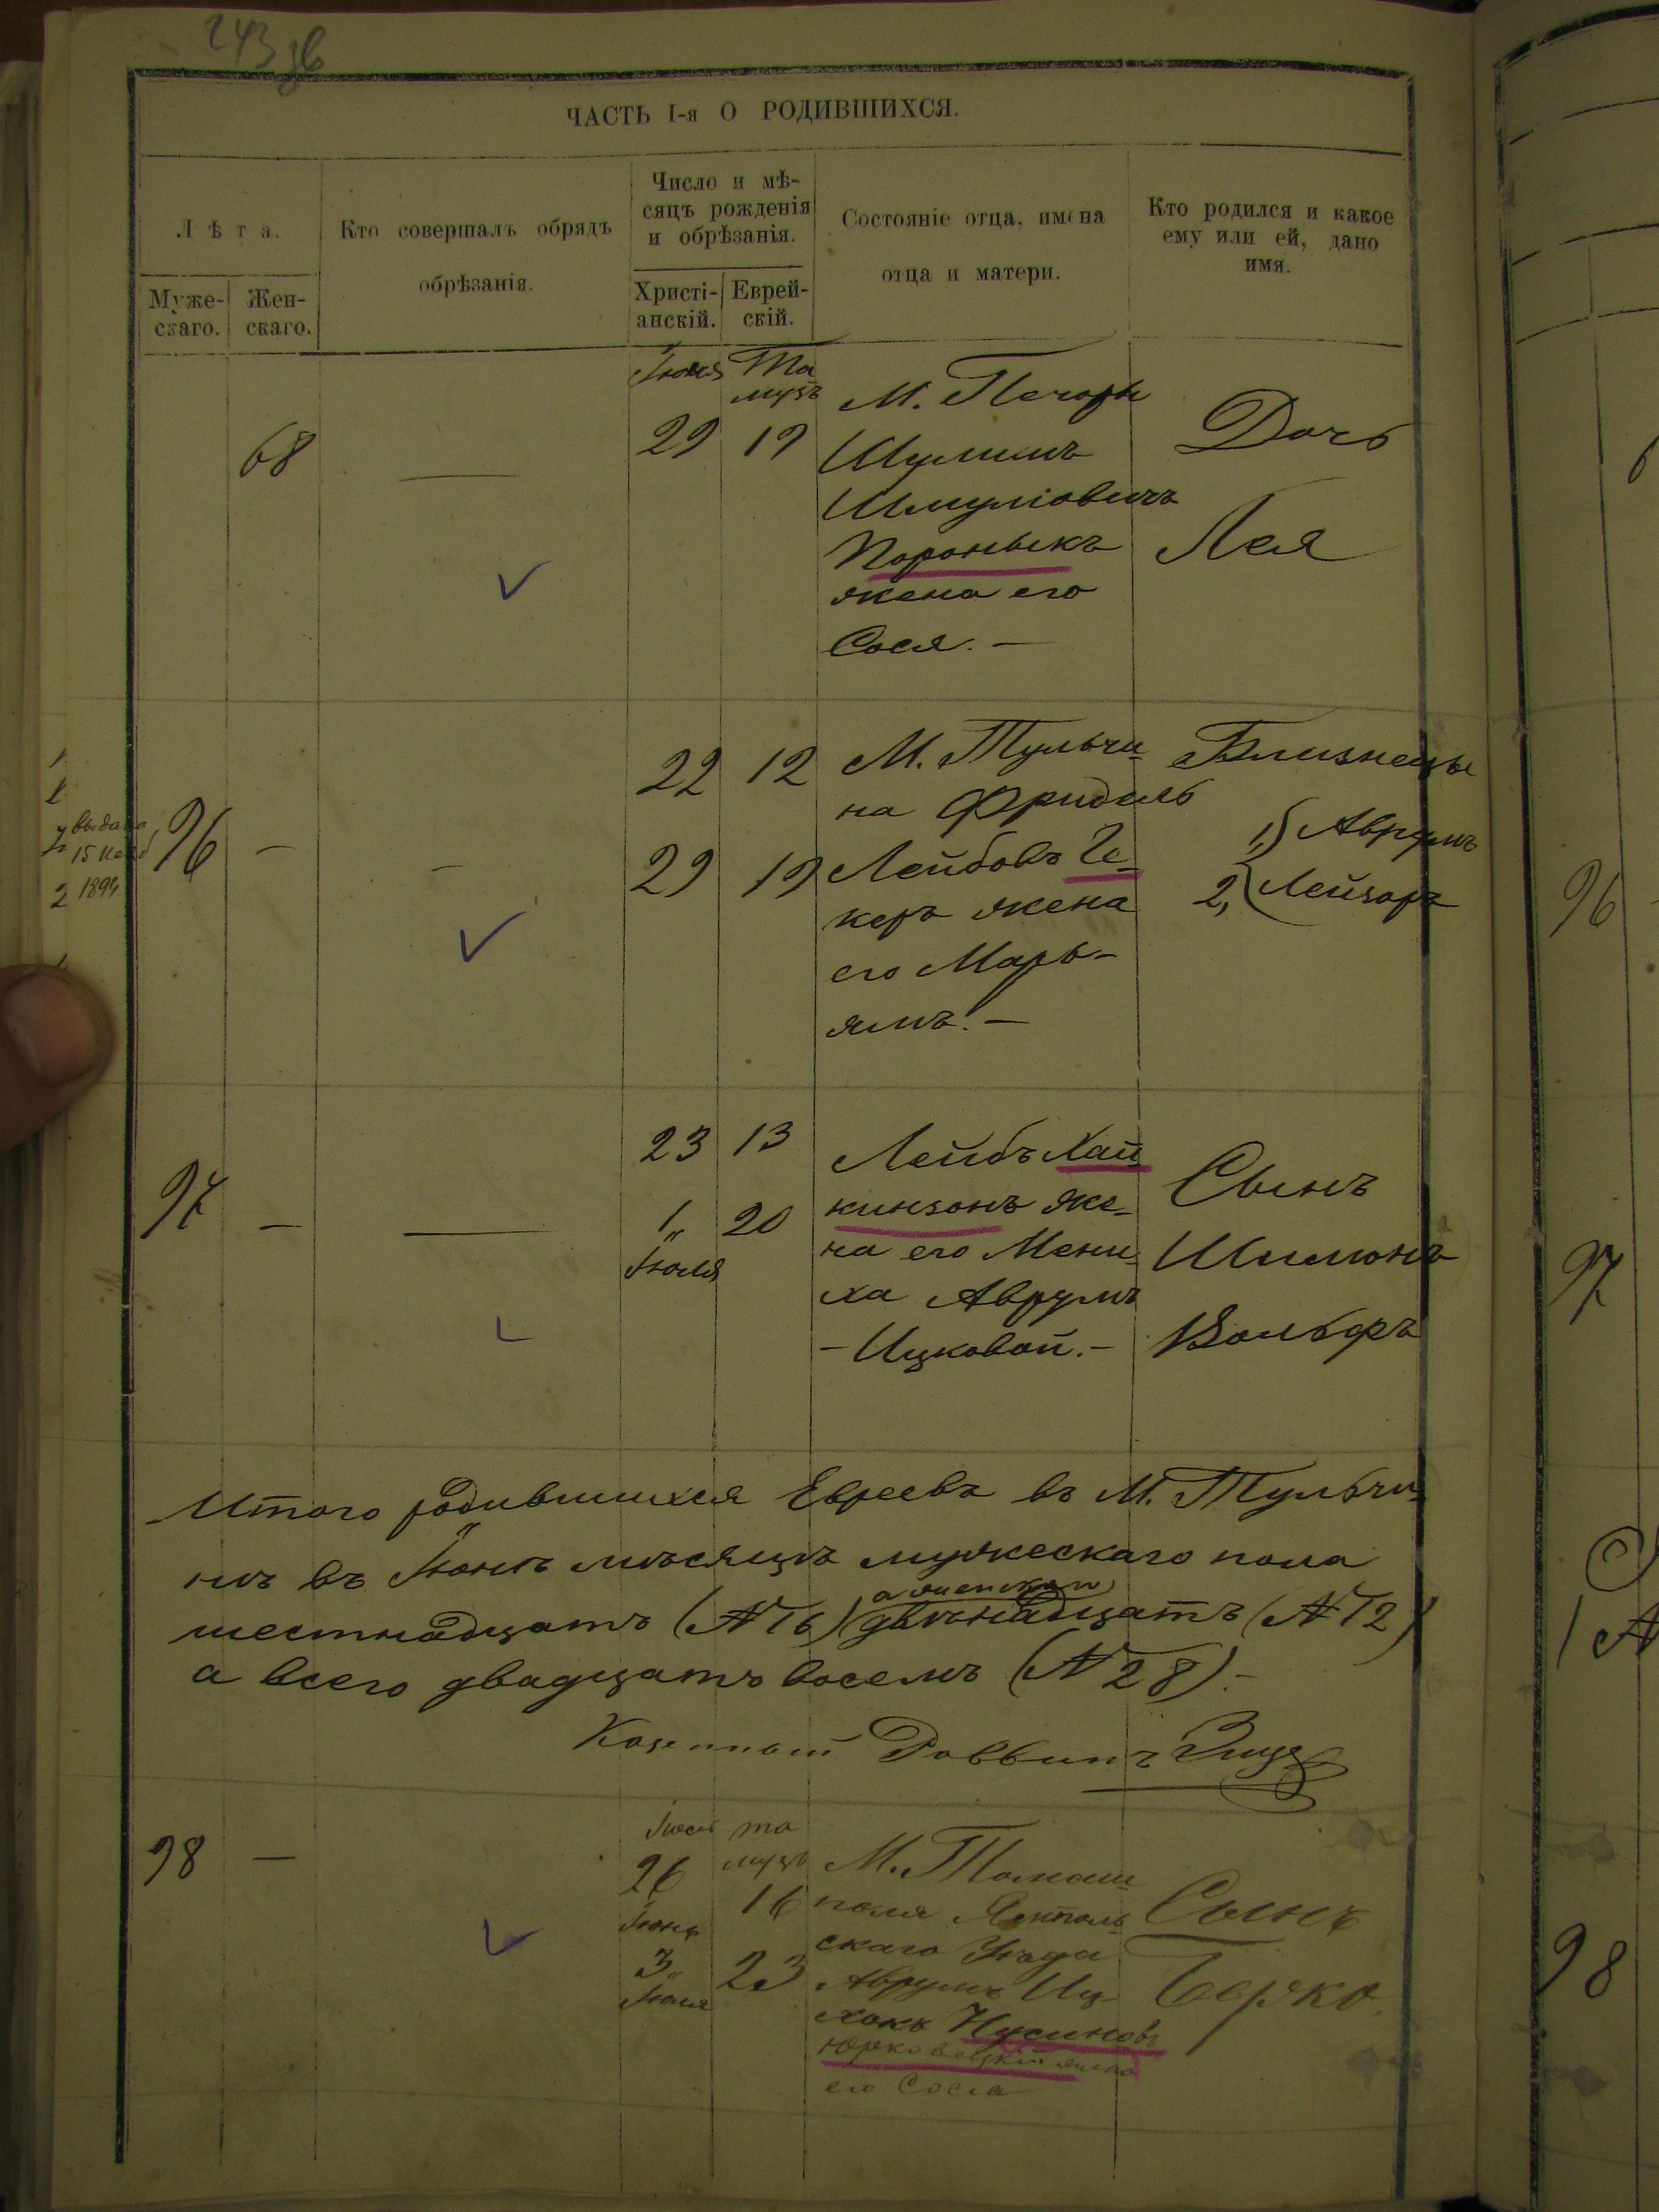 243 зв
ЧАСТЬ I-я О РОДИВШИХСЯ.
Лѣта.
Муже-
скаго.
Жен-
скаго.
Кто совершалъ обрядъ
обрѣзанія.
Число и мѣ-
сяцъ рожденія
и обрѣзанія.
Христі-
анскій.
Еврей-
скій.
Состояніе отца, имена
отца и матери.
Кто родился и какое
ему или ей, дано
имя.
68
Та
музъ
29 19
М. Печоры
Шулимъ
Шмуліовичъ
Пороныкъ
жена его
Сося. —
Дочь
Лея
выдана
15
1894
96 —
—
22 12
29 19
М. Тульчи-
на Фридель
Лейбовъ Че-
керъ жена
его Марь-
ямъ. —
Близнецы
1) Аврумъ
2) Лейзоръ
97 —
23 13
1„ 20
Іюля
Лейбъ Хай
кинзонъ же-
на его Мени-
ха Аврумъ
- Ицковой. -
Сынъ
Шимонъ
Вольфъ
Итого родившихся Евреевъ въ М. Тульчи-
нѣ въ Іюнѣ мѣсяцѣ мужескаго пола
шестнадцать (№ 16) а женскаго двѣнадцать (№ 12)
а всего двадцать восемь (№ 28). -
Казенный Раввинъ
98 —
та
музъ
26 16
Іюня
3„ 23
Іюля
М. Томаш-
поля Ямполь
скаго Уѣзда
Аврумъ Иц-
хокъ Нусиновъ
Юрковецкій жена
его Сося
Сынъ
Берко
96
97
98